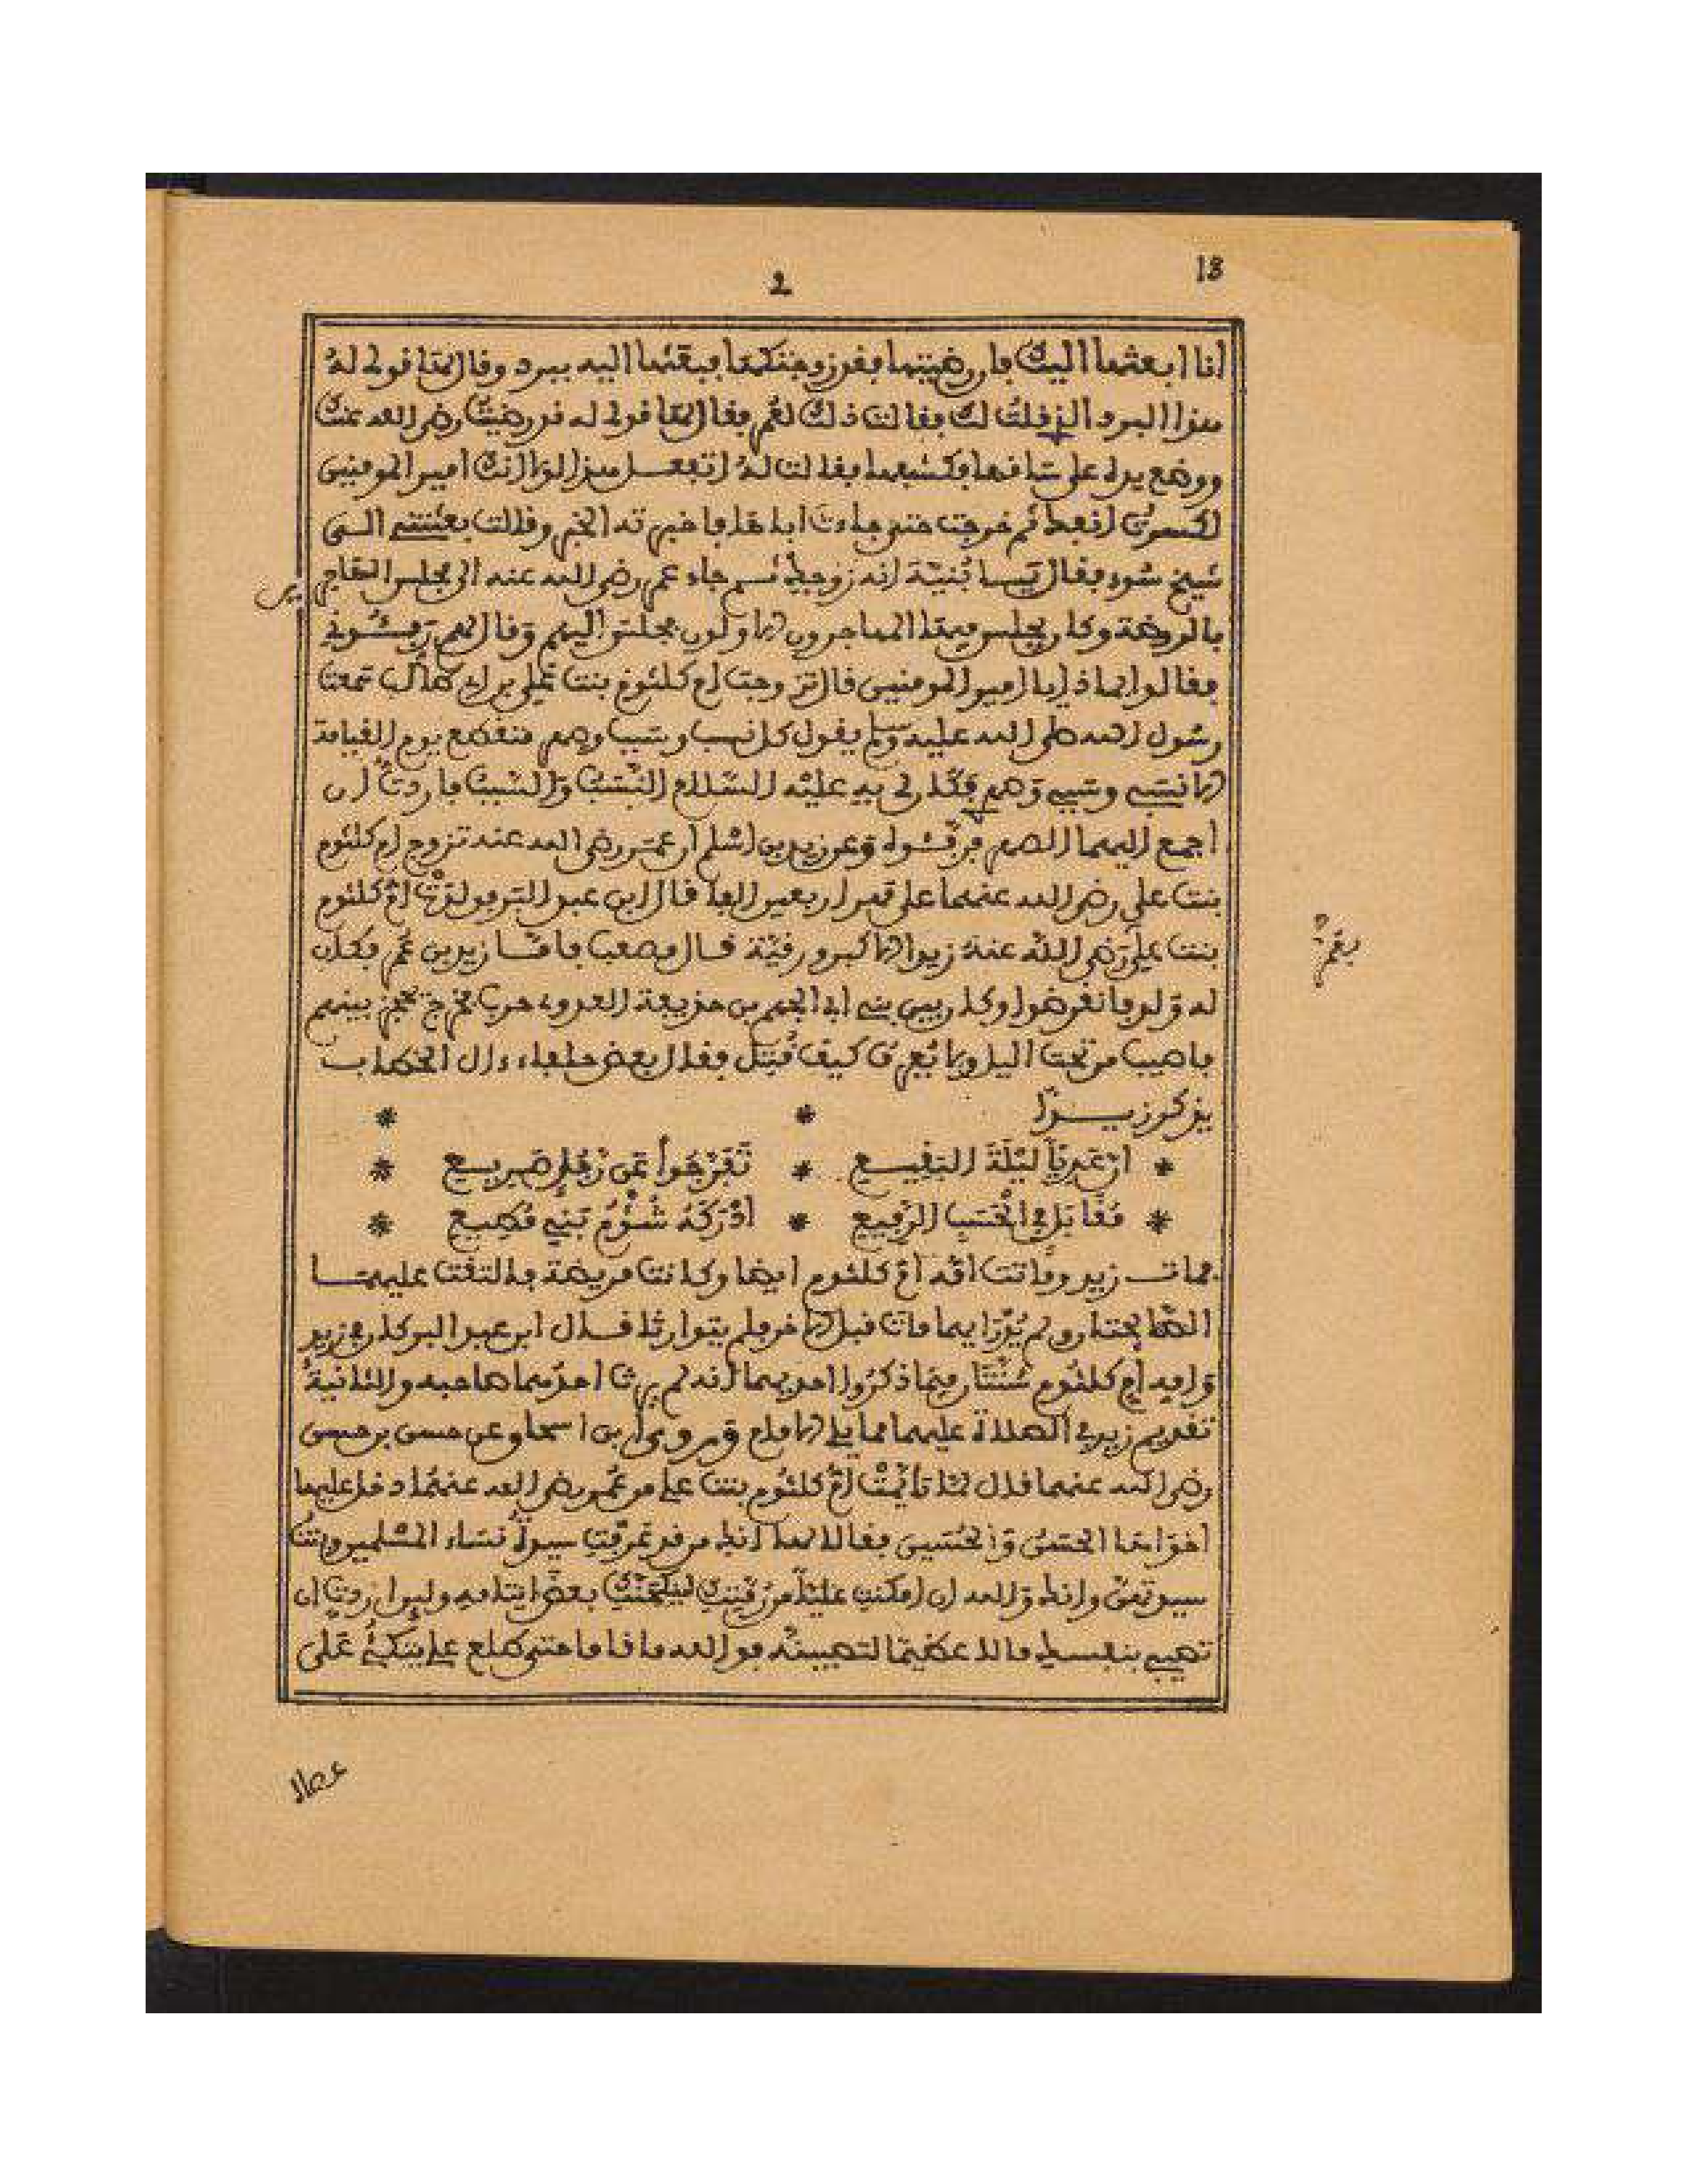 13
2
انا ابعثها اليك فان رضيتها فقد زوجتكها فبعثها اليه ببرد وقال لها قولي له
هذا البرد الذي قلت لك فقالت ذلك لعمر فقال لها قولي له قد رضيت رضي الله عنك
ووضع يده على ساقها فكشفها فقالت له اتفعل هذا لولا انك امير المومنين
لكسرت انفك ثم خرجت حتى جاءت اباها فاخبرته الخبر وقالت بعثتني الى
شيخ سوء فقال يا بنية انه زوجك ثم جاء عمر رضي الله عنه الى مجلس المهاجرين
بالروضة وكان يجلس فيها المهاجرون الاولون فجلس اليهم وقال لهم رفئوني
فقالوا بماذا يا امير المومنين قال تزوجت ام كلثوم بنت علي بن ابي طالب سمعت
رسول الله صلى الله عليه وسلم يقول كل نسب وسبب وصهر منقطع يوم القيامة
الا نسبي وسببي وصهري فكان لي به عليه السلام النسب والسبب فاردت ان
اجمع اليهما الصهر فرفئوه وعن زيد بن اسلم ان عمر رضي الله عنه تزوج ام كلثوم
بنت علي رضي الله عنهما على قدر اربعين الفا قال ابن عبد البر ولدت ام كلثوم
بنت علي رضي الله عنه زيدا الاكبر ورقية قال مصعب فاما زيد بن عمر فكان
لعمر
له ولد فانقرضوا وكان بين بني ابي الجهم بن حذيفة العدوي حرب فخرج يحجز بينهم
فاصيب من تحت الليل ولا يعرف كيف قتل فقال بعض حلفاء ءال الخطاب
يذكر زيدا * *
* ان عديا ليلة البقيع * تفرجوا عن رجل صريع *
* مقابل في الحسب الرفيع * ادركه شؤم بني مطيع *
فمات زيد وماتت امه ام كلثوم ايضا وكانت مريضة فالتقت عليهما
الصائحتان ولم يدر ايهما مات قبل الاخر فلم يتوارثا قال ابن عبد البر كان في زيد
وامه ام كلثوم سنتان فيما ذكروا احديهما انه لم يرث احدهما صاحبه والثانية
تقديم زيد في الصلاة عليهما مما يلي الامام وروى ابن اسحاق عن حسن بن حسن
رضي الله عنهما قال لما تايمت ام كلثوم بنت علي من عمر رضي الله عنهما دخل عليها
اخواها الحسن والحسين فقالا لها انك من قد عرفت سيدة نساء المسلمين وبنت
سيدتهن وانك والله ان امكنت عليا من رمتك لينكحنك بعض ايتامه ولين اردت ان
تصيبي بنفسك مالا عظيما لتصيبنه فوالله ما قاما حتى طلع علي يتكئ على
عصاه